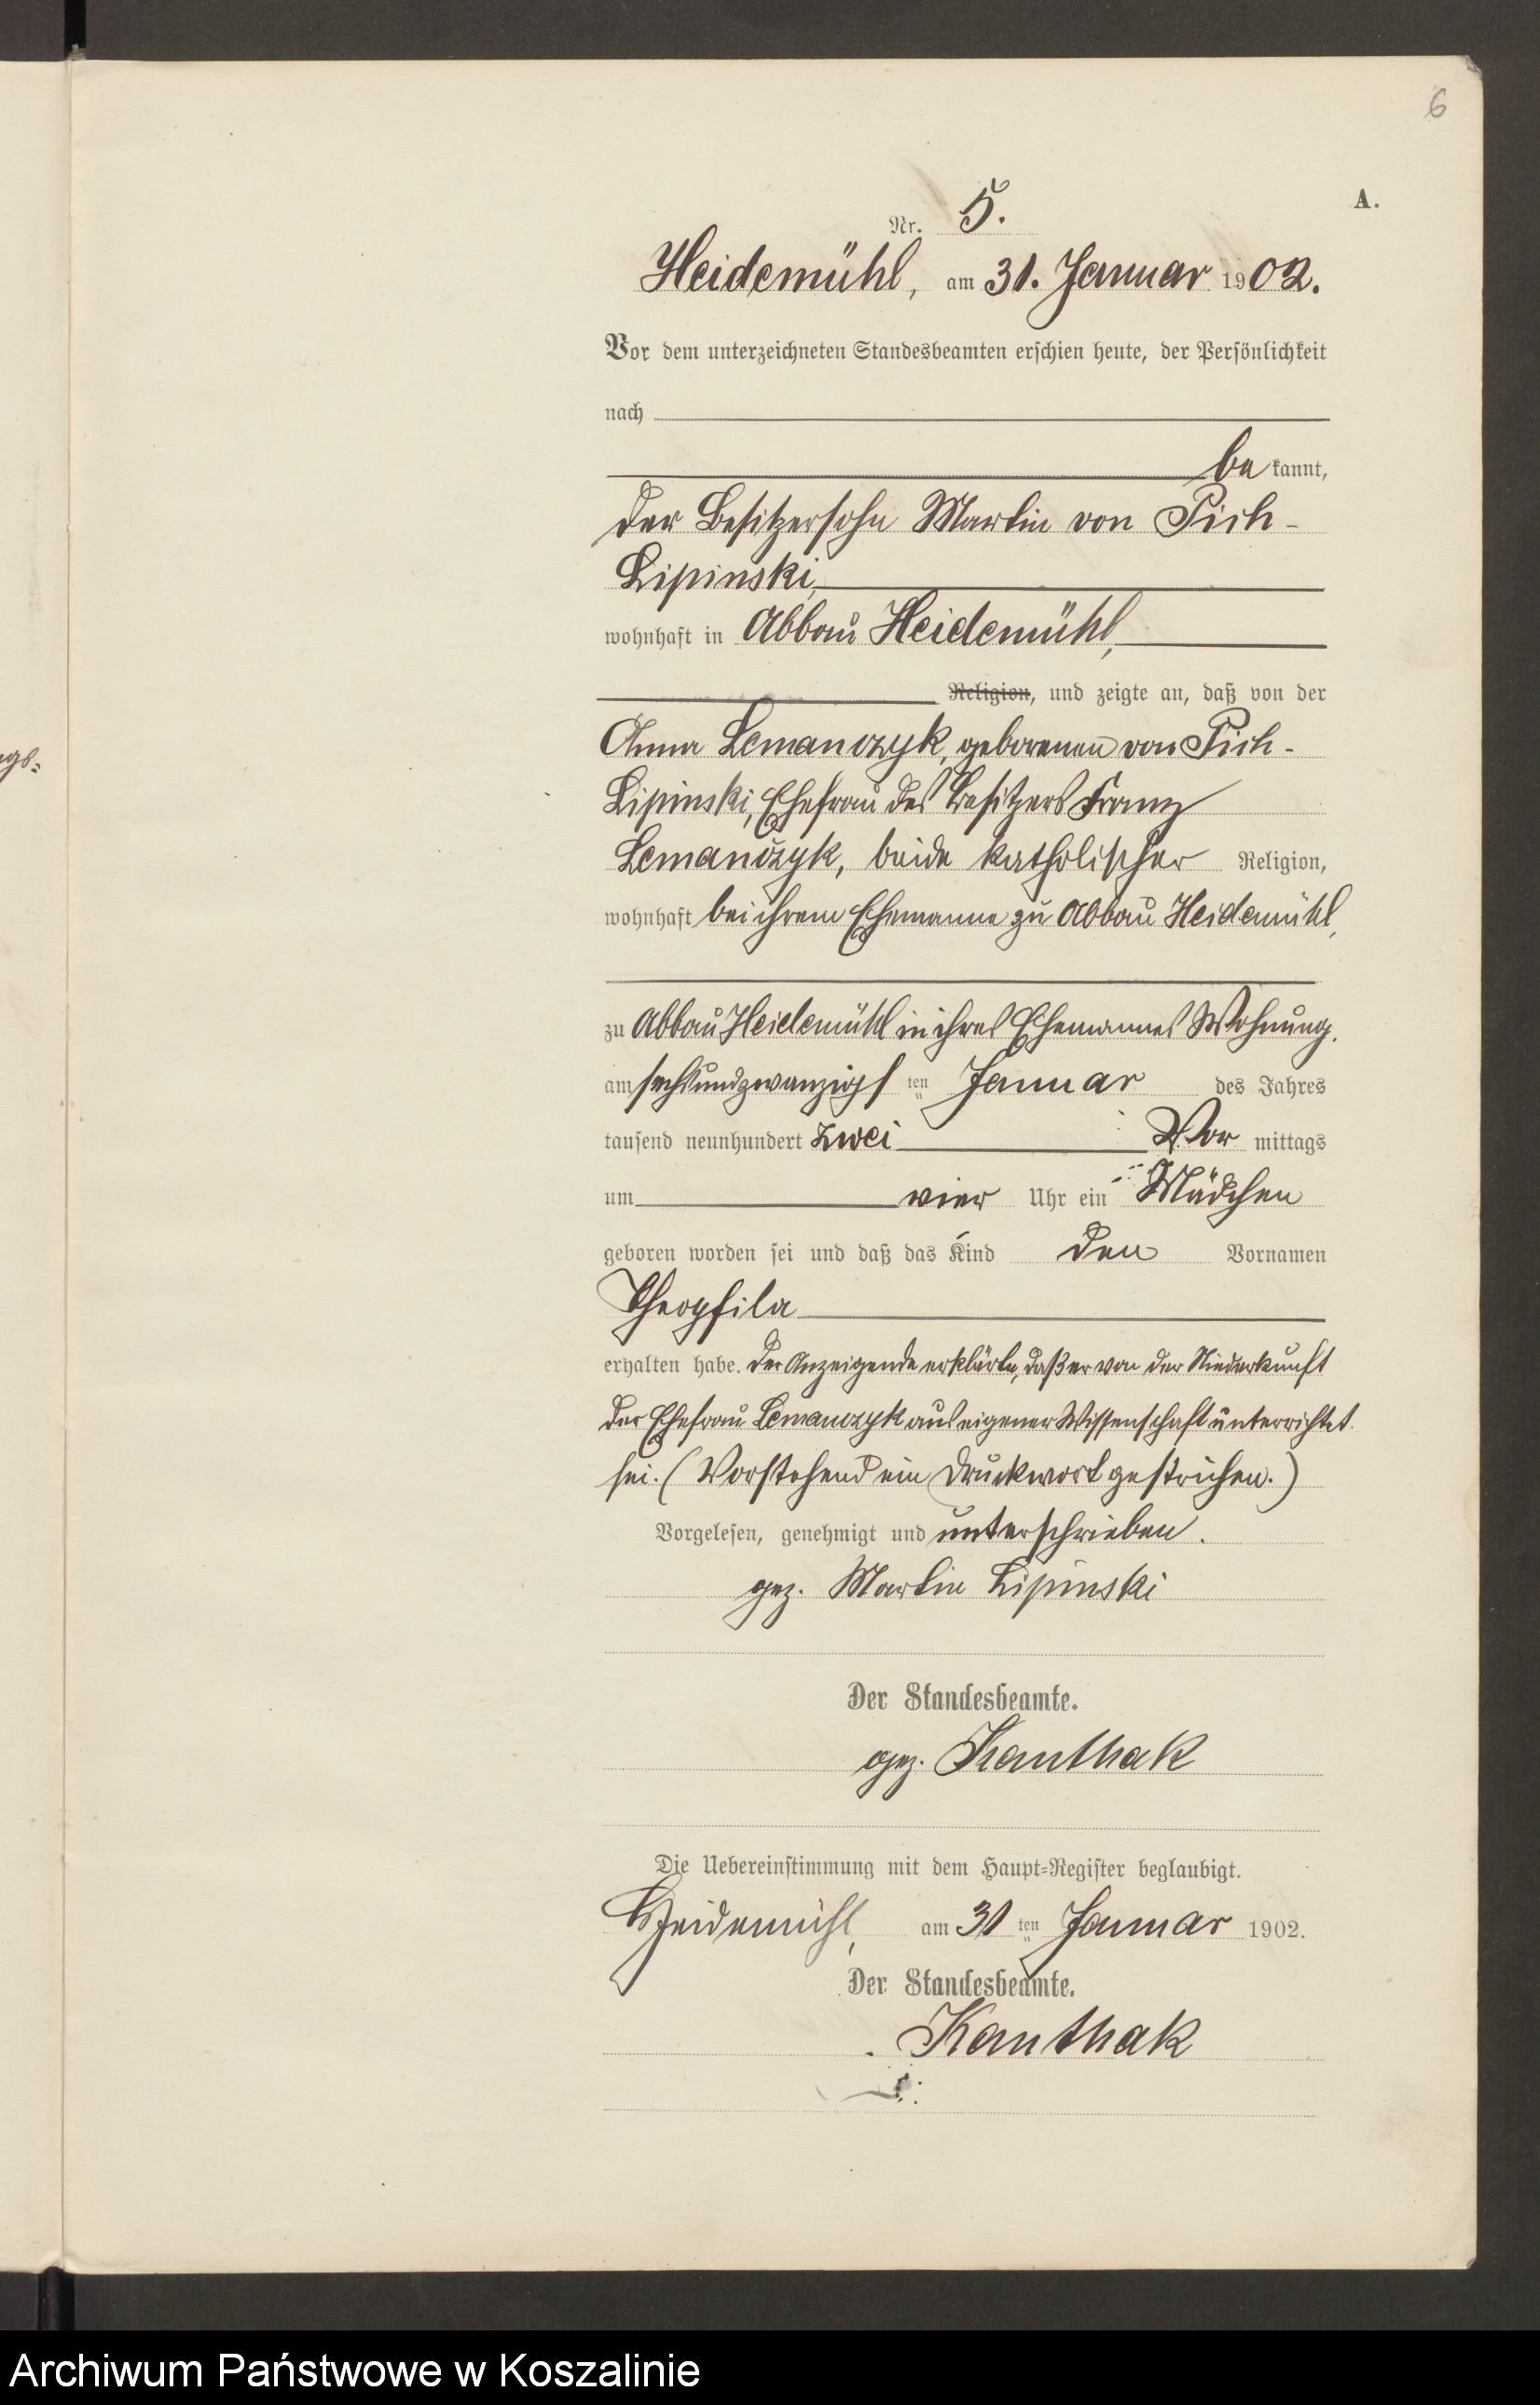 6
A.
Nr. 5.
Heidemühl, am 31. Januar 1902.
Vor dem unterzeichneten Standesbeamten erschien heute, der Persönlichkeit
nach
be kannt,
der Besitzersohn Martin von Pich-
Lipinski,
wohnhaft in Abbau Heidemühl,
Religion, und zeigte an, daß von der
Anna Lemanczyk, geborenen von Pich-
Lipinski, Ehefrau des Besitzers Franz
Lemanczyk, beide katholischer Religion,
wohnhaft bei ihrem Ehemanne zu Abbau Heidemühl,
zu Abbau Heidemühl in ihres Ehemannes Wohnung,
am sechsundzwanzigs ten Januar des Jahres
tausend neunhundert zwei Vor mittags
um vier Uhr ein Mädchen
geboren worden sei und daß das Kind den Vornamen
Theophila
erhalten habe. Der Anzeigende erklärte, daß er von der Niederkunft
der Ehefrau Lemanczyk aus eigener Wissenschaft unterrichtet
sei. (Vorstehend ein Druckwort gestrichen.)
Vorgelesen, genehmigt und unterschrieben.
gez. Martin Lipinski
Der Standesbeamte.
gez. Kanthak
Die Uebereinstimmung mit dem Haupt-Register beglaubigt.
Heidemühl, am 31 ten Januar 1902.
Der Standesbeamte.
Kanthak
Archiwum Państwowe w Koszalinie